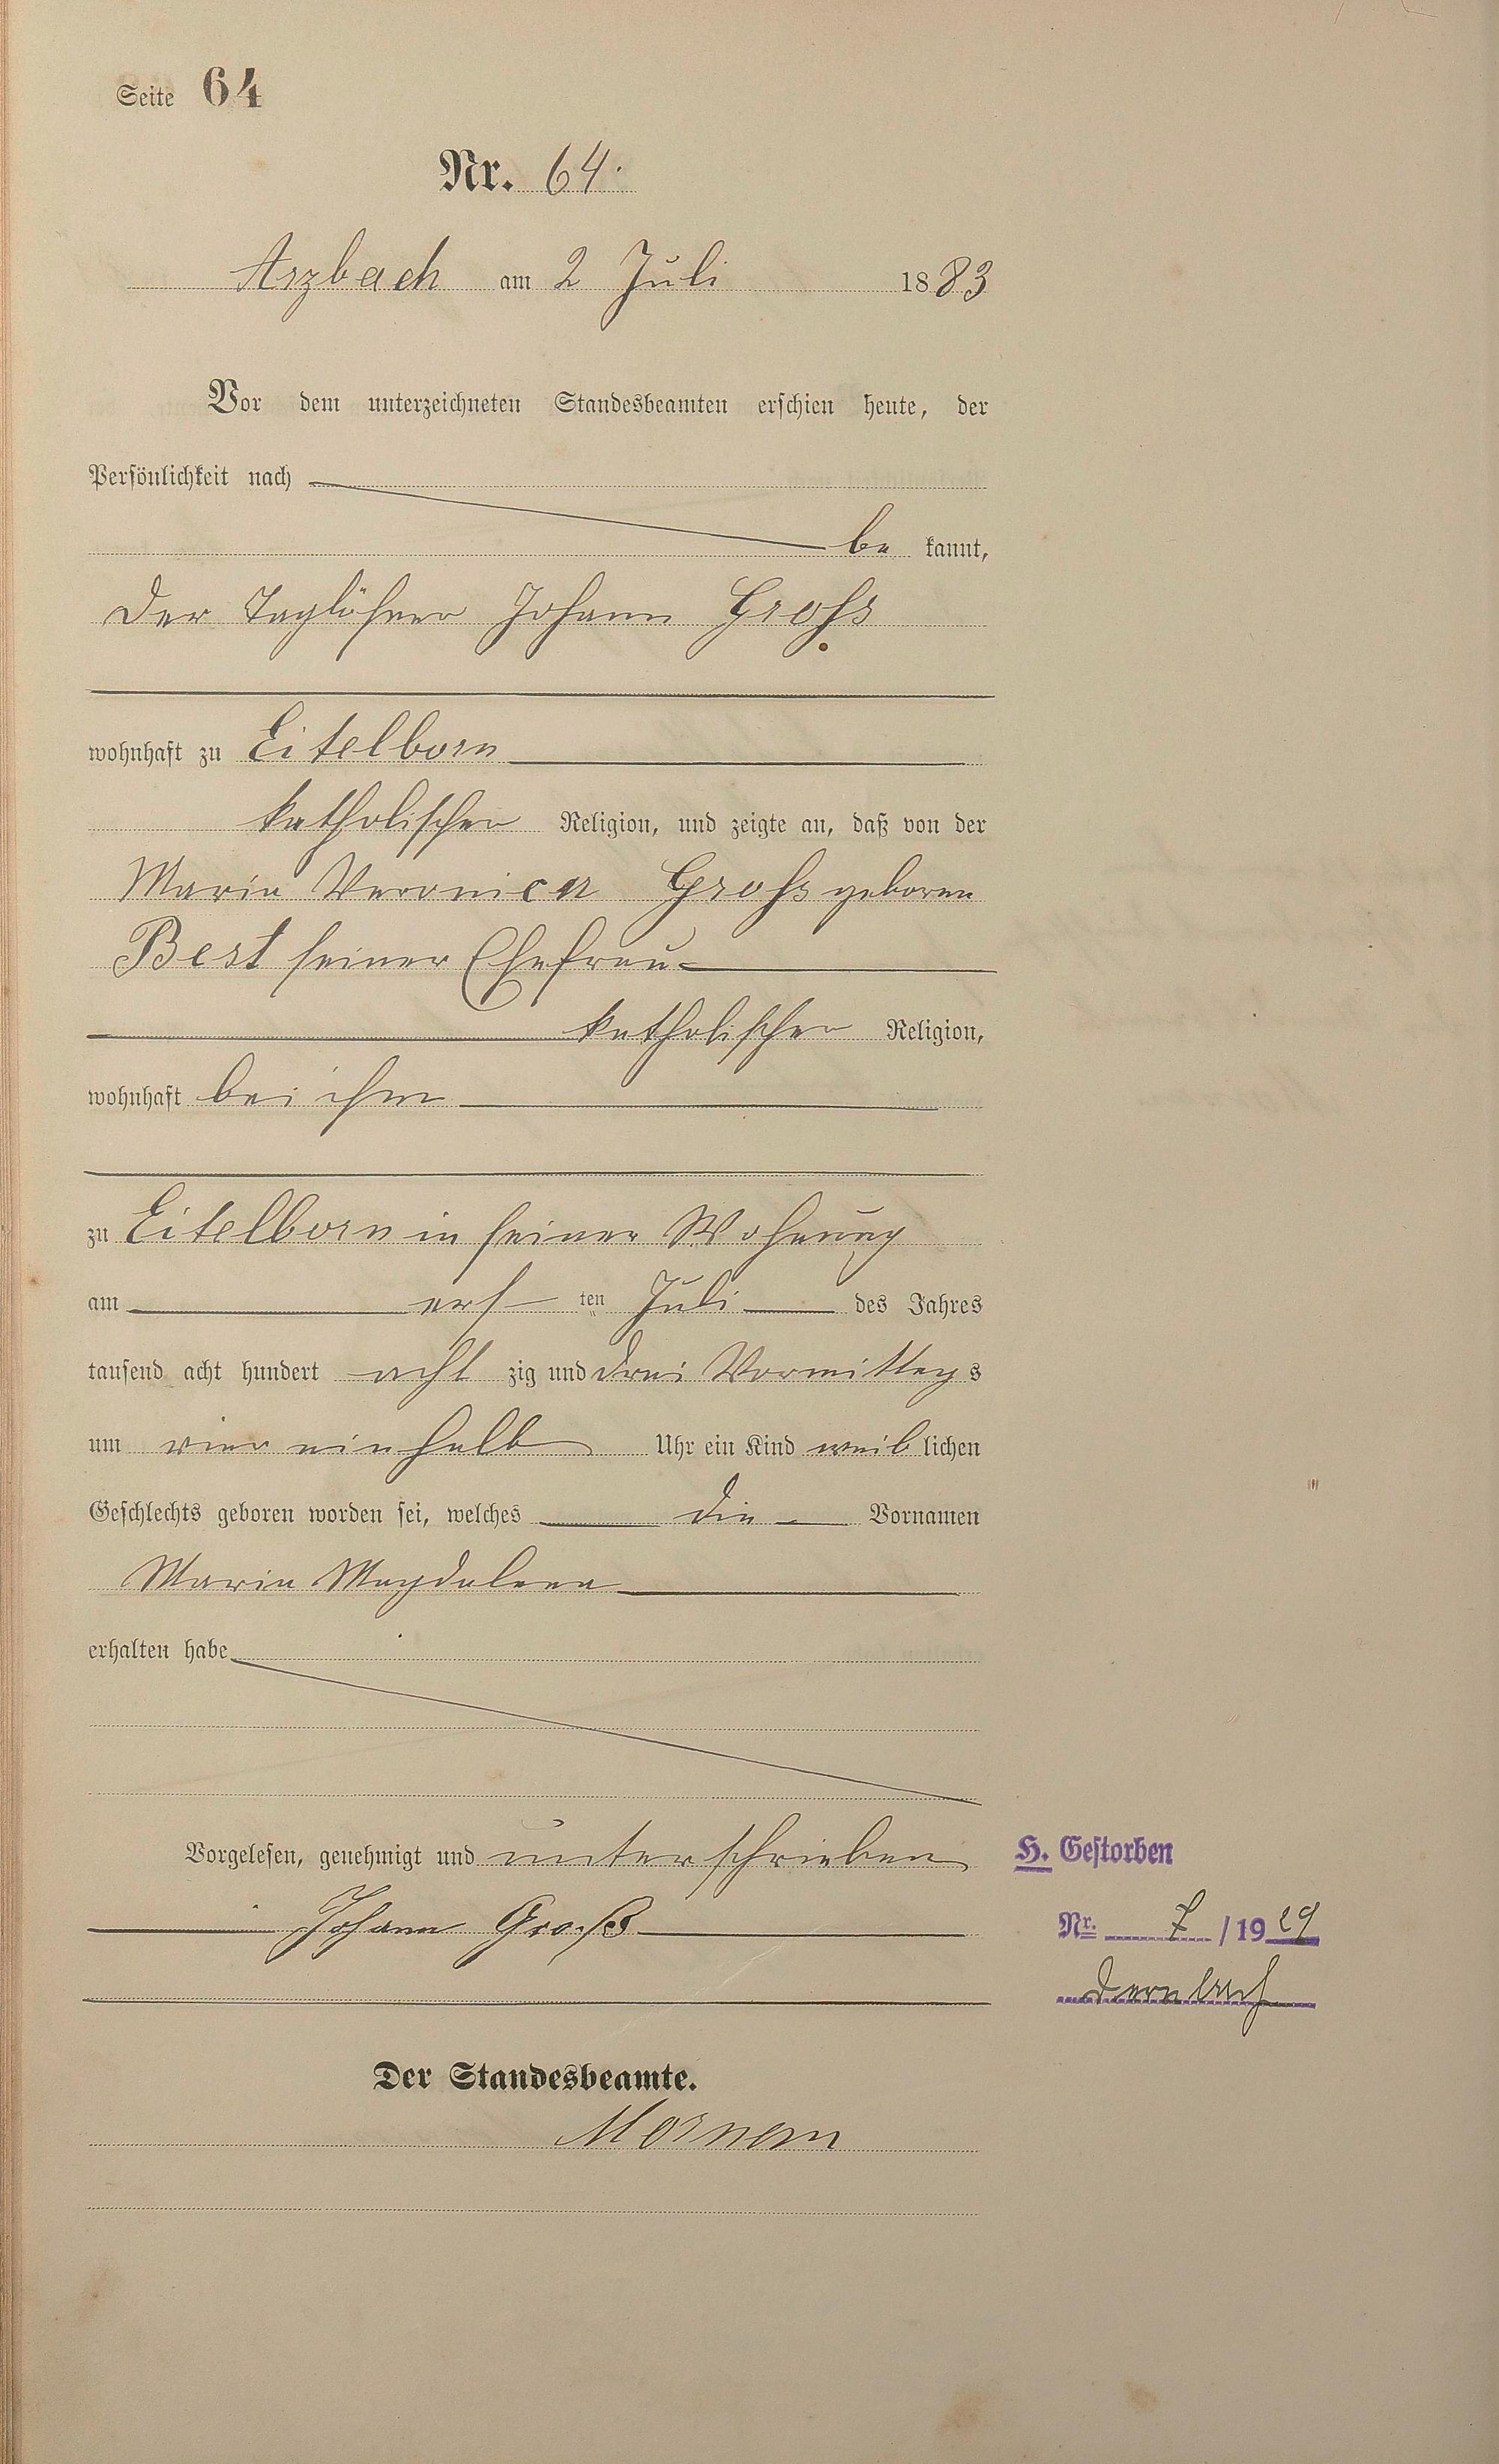 Seite 64
Nr. 64.
Arzbach am 2 Juli 1883
Vor dem unterzeichneten Standesbeamten erschien heute, der
Persönlichkeit nach
be kannt,
Der Taglöhner Johann Groß
wohnhaft zu Eitelborn
katholischer Religion, und zeigte an, daß von der
Maria Veronica Groß geboren
Best seiner Ehefrau
katholischer Religion,
wohnhaft bei ihm
zu Eitelborn in seiner Wohnung
am ersten Juli des Jahres
tausend acht hundert acht zig und drei Vormittags
um vier ein halb Uhr ein Kind weib lichen
Geschlechts geboren worden sei, welches die Vornamen
Maria Magdalena
erhalten habe
Vorgelesen, genehmigt und unterschrieben
Johann Groß
H. Gestorben
Nr. 7 / 1929
Dernbach
Der Standesbeamte.